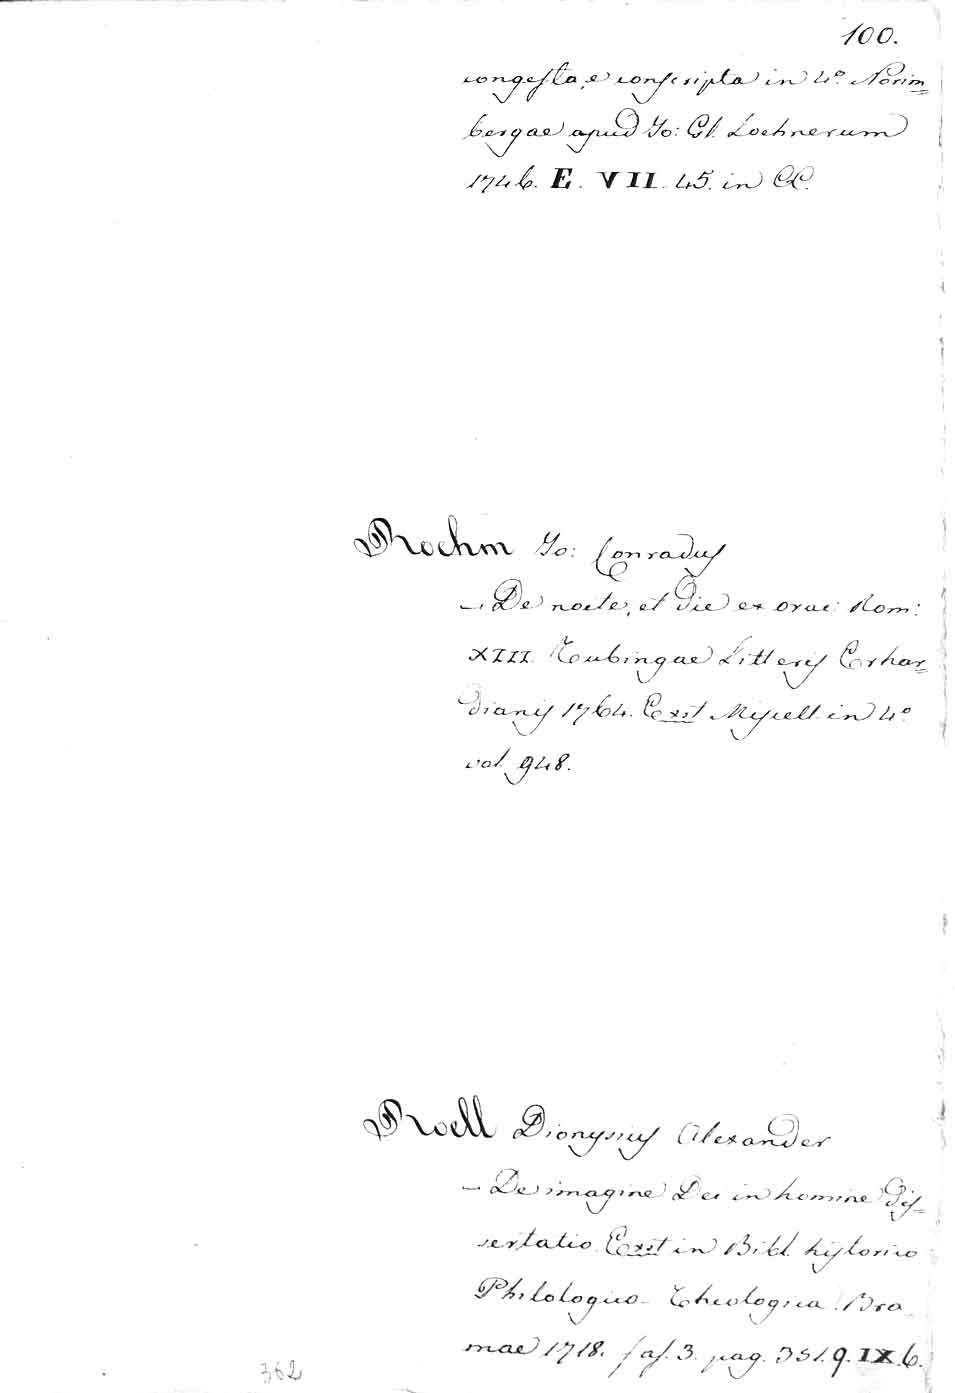 100.
congesta, e conscripta in 4.º Norim=
bergae apud Jo: Gl. Lochnerum
1746. E. VII. 45. in CC.
Roehm Jo: Conradus
—. De nocte, et die ex orac: Rom:
XIII. Tubingae Litteris Erhar=
dianis 1764. Exst Miscell. in 4.º
vol. 948.
Roell Dionysius Alexander
— De imagine Dei in homine dis=
sertatio. Exst in Bibl. historico
Philologico- Theologica. Bra
mae 1718. fas. 3. pag. 351. 9. IX. 6.
362